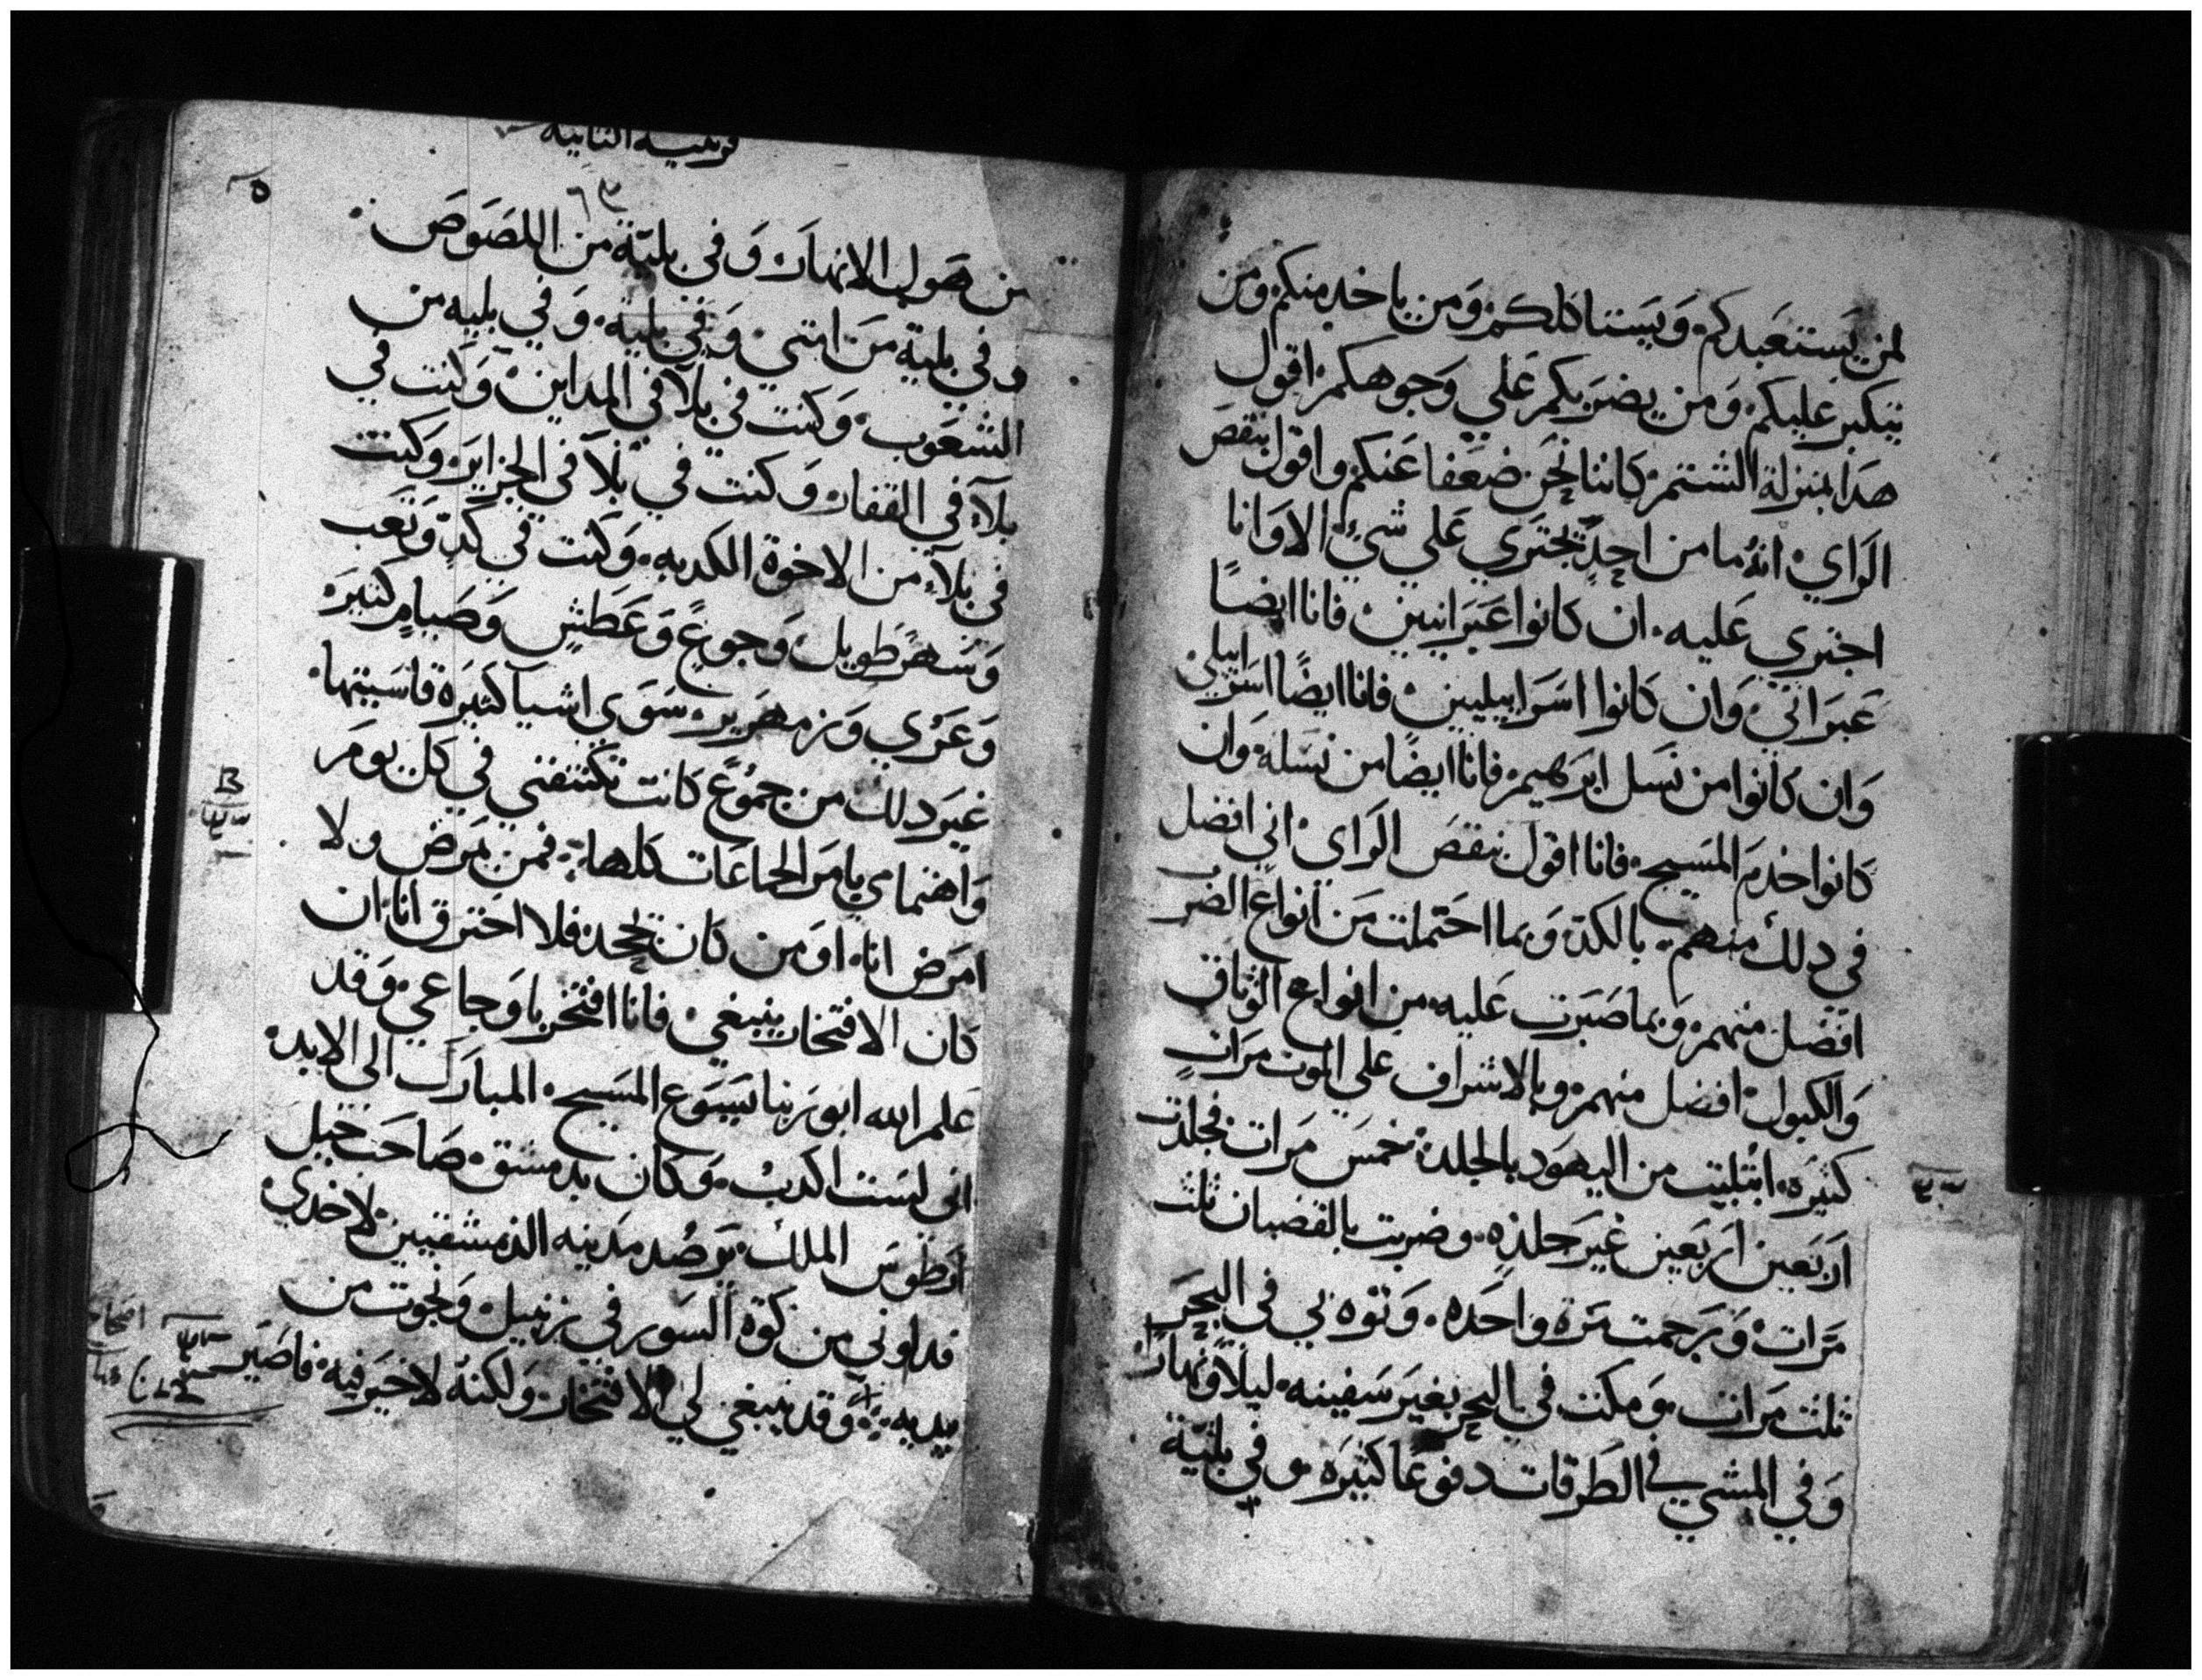 لمن يستعبدكم. ويستاكلكم. ومن ياخد منكم. ومن
يتكبر عليكم. ومن يضربكم علي وجوهكم. اقول
هدا بمنزلة الشتم. كاننا نحن ضعفا عنكم. واقول بنقص
الراي. انه ما من احد يجتري علي شيء. الا وانا
اجتري عليه. ان كانوا عبرانيين. فانا ايضا
عبراني. وان كانوا اسراييليين. فانا ايضا اسراييلي
وان كانوا من نسل ابرهيم. فانا ايضا من نسله. وان
كانوا خدم المسيح. فانا اقول بنقص الراي. اني افضل
في دلك منهم. بالكد. وبما احتملت من انواع الضرب
افضل منهم. وبما صبرت عليه من انواع الوثاق
والكبول. افضل منهم. وبالاشراف علي الموت مرات
كثيره. ابتليت من اليهود بالجلد. خمس مرات فجلدت
اربعين اربعين غير جلده. وضربت بالقضبان ثلث
مرات. ورجمت مرة واحده. وتوه بي في البحر
ثلث مرات. ومكثت في البحر بغير سفينه. ليلا ونهارا.
وفي المشي في الطرقات دفوعا كثيره. وفي بليّة
الثانيه
من صول الانهار. وفي بليّة من اللصوص.
وفي بلية من امتي. وفي بلية. وفي بليه من
الشعوب. وكنت في بلآ في المداين. وكنت في
بلآء في القفار. وكنت في بلآ في الجزاير. وكنت
في بلآء من الاخوة الكدبه. وكنت في كدّ وتعب
وسهر طويل. وجوع وعطش وصيام كثير.
وعري وزمهرير. سوي اشيا كثيرة قاسيتها.
غير دلك من جموع كانت تكتنفني في كل يوم
واهتمامي بامر الجماعات كلها. فمن يمرض ولا
امرض انا. او من كان يجحد. فلا احترق انا. ان
كان الافتخار ينبغي. فانا افتخر باوجاعي. وقد
علم الله ابو ربنا يسوع المسيح. المبارك الي الابد.
اني لست اكدب. وكان بدمشق. صاحب خيل
ارطوس الملك. يرصد مدينه الدمشقيين. لاخدي
فدلوني من كوة السور في زنبيل. ونجوت من
يديه. وقد ينبغي لي الافتخار. ولكنه لا خير فيه. فاصير